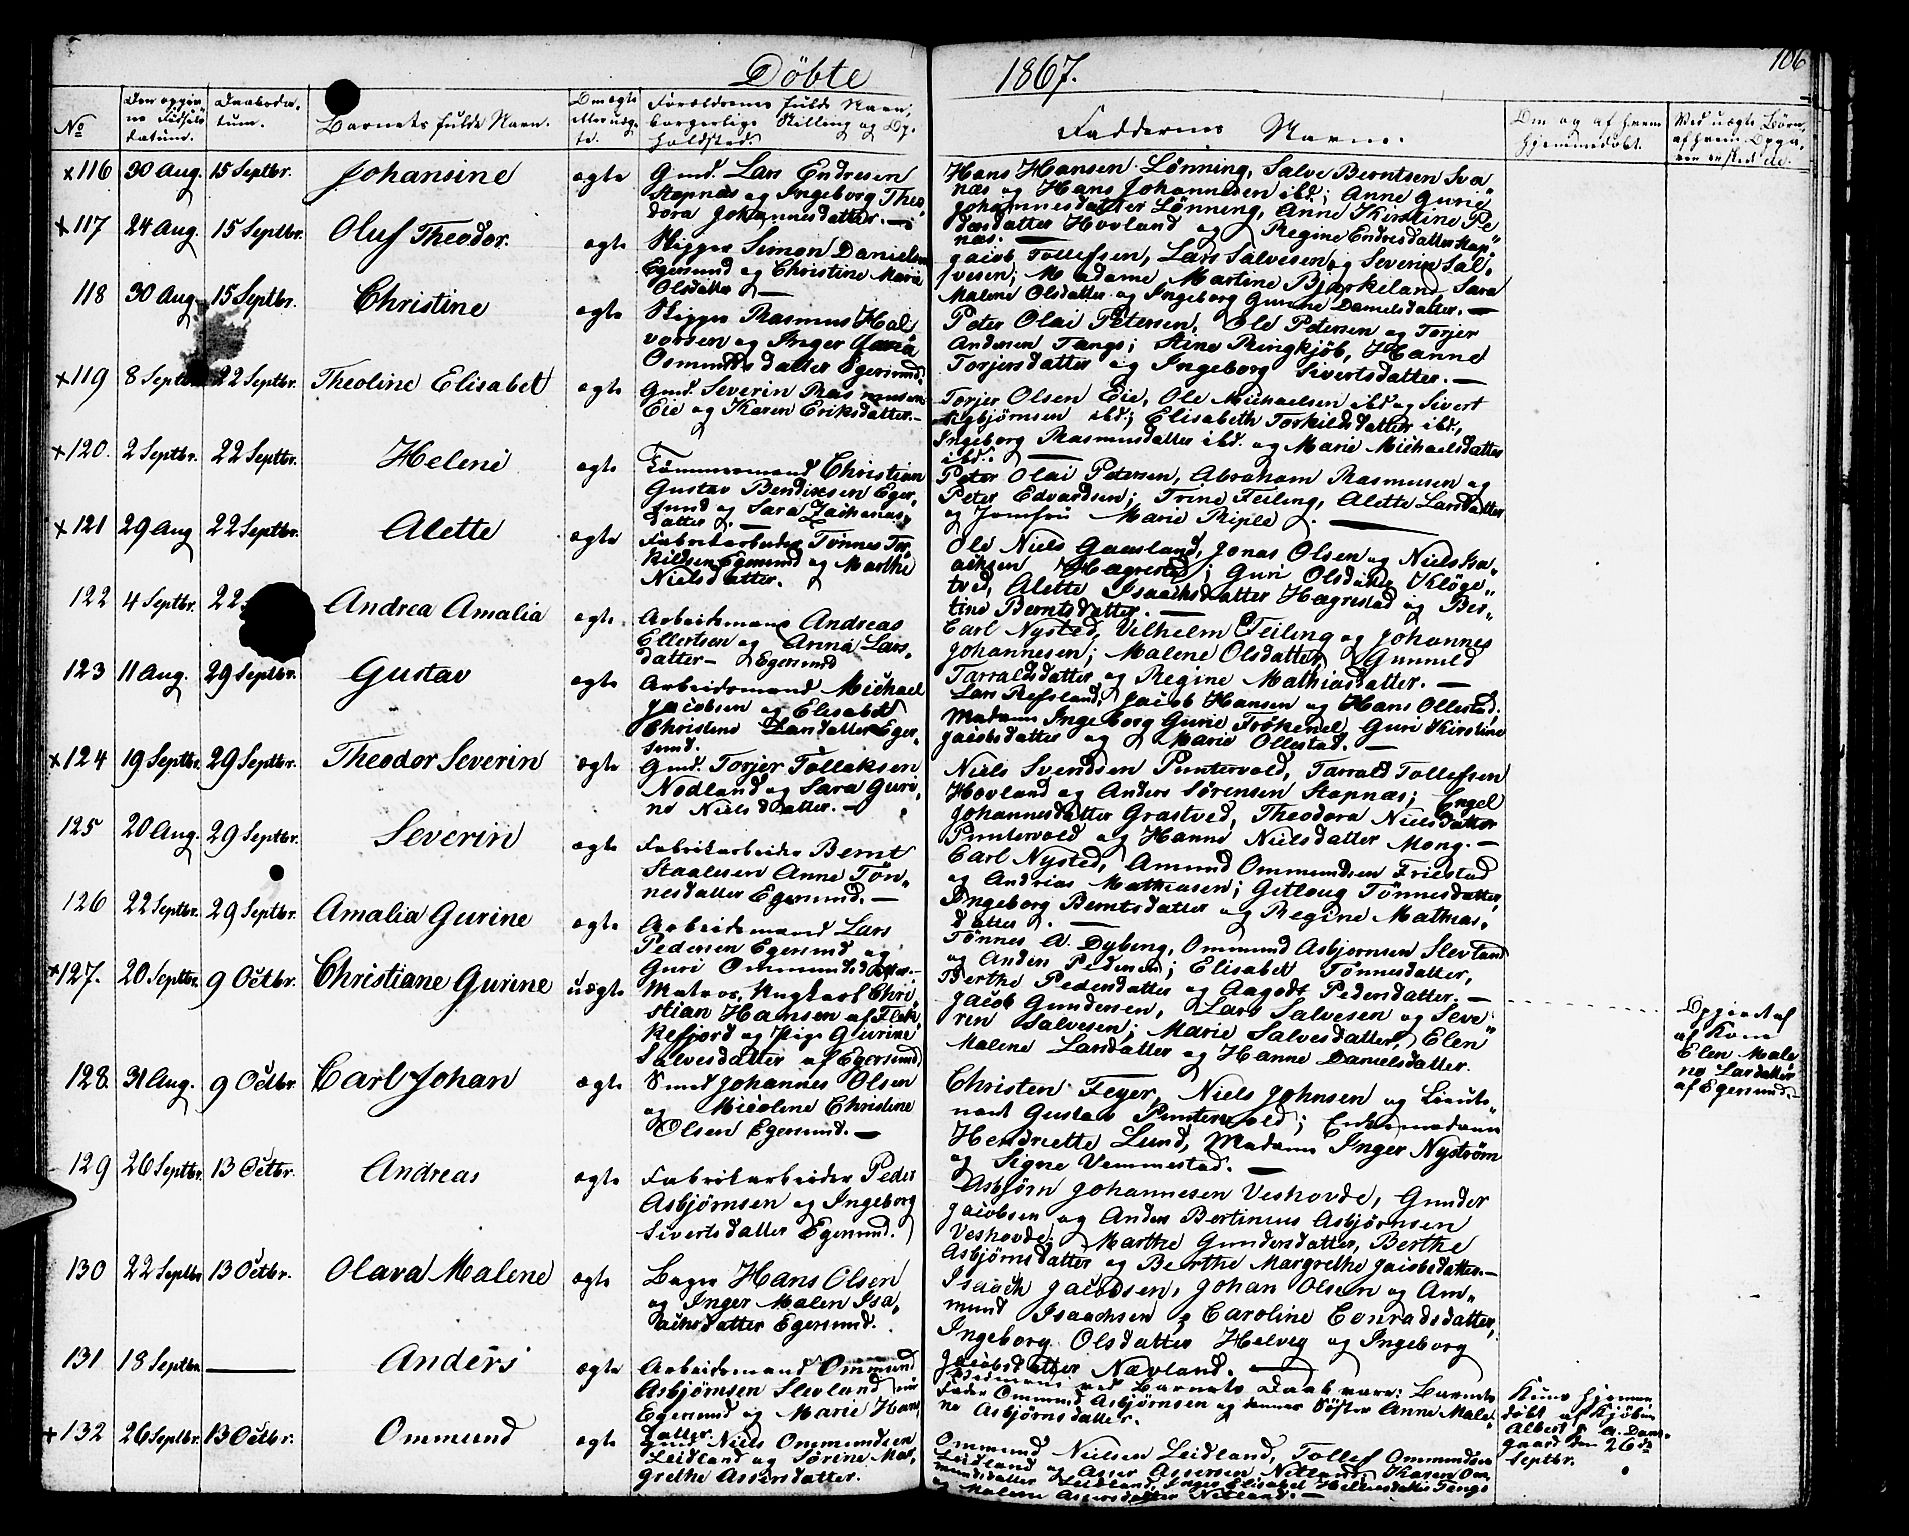 Döbte 1867. 106
No
Den opgiv
ne Födsels
datum.
Daabsda
tum.
Barnets fulde Navn.
Om ægte
eller uæg
te.
Forældrenes fulde Navn,
borgerlige Stilling og Op
holdsted.
Faddernes Navne.
Om og af hvem
hjemmedöbt.
Med uægte Börn,
af hvem Opga
ven
x116 30 Aug. 15 Septbr. Johansine ægte
Gmd. Lars Endresen
Stapnæs og Ingeborg Theo
dora Johannesdatter.
Hans Hansen Lønning, Salve Berntsen Sva
næs og Hans Johannesen ibd; Anne Gurie
Johannesdatter Lønning, Anne Kirstine Pe
dersdatter Hovland og Regine Endresdatter Stap
næs.
x117 24 Aug. 15 Septbr. Oluf Theodor. ægte
Skipper Simon Danielsen
Egersund og Christine Marie
Olsdatter
Jacob Tollefsen, Lars Salvesen og Severin Sal
vesen; Madame Martine Bjerkeland Sara
Malene Olsdatter og Ingeborg Gurine Danielsdatter.
118 30 Aug. 15 Septbr. Christine ægte
Skipper Rasmus Hal
vorsen og Inger Maria
Osmundsdatter Egersund.
Peter Olai Petersen, Ole Petersen og Torjer
Andersen Tangs; Stine Ringkjøb, Hanne
Torjersdatter og Ingeborg Sivertsdatter.
x119 8 Septbr. 22 Septbr. Theoline Elisabet ægte
Gmd. Severin Rasmusen
Eie og Karen Eriksdatter.
Torjer Olsen Eie, Ole Michaelsen ibd og Sivert
Asbjørnsen ibd; Elisabeth Torkildsdatter ibd,
Ingeborg Rasmusdatter ibd. og Marie Michaelsdatter
ibd.
x120. 2 Septbr. 22 Septbr. Helene ægte
Tömmermand Christian
Gustav Bendixsen Eger
sund og Sara Zacharias
datter
Peter Olai Petersen, Abraham Rasmusen og
Peter Edvardsen; Trine Feiling, Alette Larsdatter
og Jomfru Marie Riple.
x121 29 Aug 22 Septbr. Alette ægte
Fabrikarbeider Tønnes Tor
kildsen Egersund og Marthe
Nielsdatter.
Ole Niels Gaasland, Jonas Olsen og Niels Isa
achsen Hægrestad; Guri Olsdatter Kløge
tved, Alette Isaachsdatter Hægrestad og Ber
tine Berntsdatter.
122 4 Septbr. 22 Andrea Amalia ægte
Arbeidsmand Andreas
Ellertsen og Anna Lars
datter Egersund
Carl Nysted, Vilhelm Feiling og Johannes
Johannesen; Malene Olsdatter, Gunnild
Tarraldsdatter og Regine Mathiasdatter.
123 11 Aug. 29 Septbr. Gustav ægte
Arbeidsmand Michael
Jacobsen og Elisabet
Christene Larsdatter Eger
sund.
Lars Refsland, Jacob Hansen og Hans Ollestad.
Madame Ingeborg Gurie Trökenel, Guri Kirstine
Jacobsdatter og Marie Ollestad.
x124 19 Septbr. 29 Septbr. Theodor Severin ægte
Gmd. Torjer Tollaksen
Nodland og Sara Guri
ne Nielsdatter.
Niels Svendsen Puntervold, Tarrald Tollefsen
Hovland og Anders Sörensen Stapnæs; Engel
Johannesdatter Grastved, Theodora Nielsdatter
Puntervold og Hanne Nielsdatter Mong.
125 20 Aug. 29 Septbr. Severin ægte
Fabrikarbeider Bernt
Staalesen Anne Tön
nesdatter Egersund.
Carl Nysted, Amund Ommundsen Friestad
og Andrias Mathiasen; Gitloug Tönnesdatter,
Ingeborg Berntsdatter og Regine Mathias
datter.
126 22 Septbr. 29 Septbr. Amalia Gurine ægte
Arbeidsmand Lars
Pedersen Egersund og
Guri Ommundsdatter.
Tönnes A. Dybing, Ommund Asbjørnsen Slevland
og Anders Pedersen; Elisabet Tönnesdatter,
Berthe Pedersdatter og Aagodt Pedersdatter.
x127. 20 Septbr. 9 Octbr. Christiane Gurine uægte
Matros, Ungkarl Chri
stian Hansen af Flek
kefjord og Pige Gurine
Salvesdatter af Egersund
Jacob Gundersen, Lars Salvesen og Seve
rin Salvesen; Marie Salvesdatter, Elen
Malene Larsdatter og Hanne Danielsdatter.
Opgivet af
af Kone
Elen Male
ne Larsdatter
af Egersund.
128. 31 Aug. 9 Octbr Carl Johan ægte
Smed Johannes Olsen
og Nicoline Christine
Olsen Egersund.
Christen Feyer, Niels Johnsen og Lieute
nant Gustav Puntervold; Enkemadame
Hendriette Lund, Madame Inger Nyström
og Signe Vemmestad.
129 26 Septbr. 13 Octbr. Andreas ægte
Fabrikarbeider Peder
Asbjørnsen og Ingeborg
Sivertsdatter Egersund.
Asbjørn Johannesen Veshovde, Gunder
Jacobsen og Anders Bertinius Asbjørnsen
Veshovde; Marthe Gundersdatter, Berthe
Asbjørnsdatter og Berthe Margrethe Jacobsdatter.
130 22 Septbr 13 Octbr. Olava Malene ægte
Bager Hans Olsen
og Inger Malen Isa
achsdatter Egersund.
Isaach Jacobsen, Johan Olsen og Am
mund Isaachsen; Caroline Conradsdatter,
Ingeborg Olsdatter Helvig og Ingeborg
Jacobsdatter Nævland.
131 18 Septbr. Anders ægte
Arbeidsmand Ommund
Asbjørnsen Slevland
Egersund og Marie Hans
datter.
ved Barnets Daab vare: Barnets
Fader Ommund Asbjørnsen og dennes Söster Anne Male
ne Asbjørnsdatter.
Kun hjemme
döbt af Kjöbm
Albert
gaard den 26de
Septbr.
x132 26 Septbr. 13 Octbr. Ommund ægte
Gmd. Niels Ommundsen
Leidland og Sörine Mar
grethe Assersdatter.
Ommund Nielsen Leidland, Tollef Ommundsen
Leidland og Asser Assersen Netland; Karen Om
mundsdatter Leidland, Inger Elisabet Tengs
og Malene Assersdatter Netland.